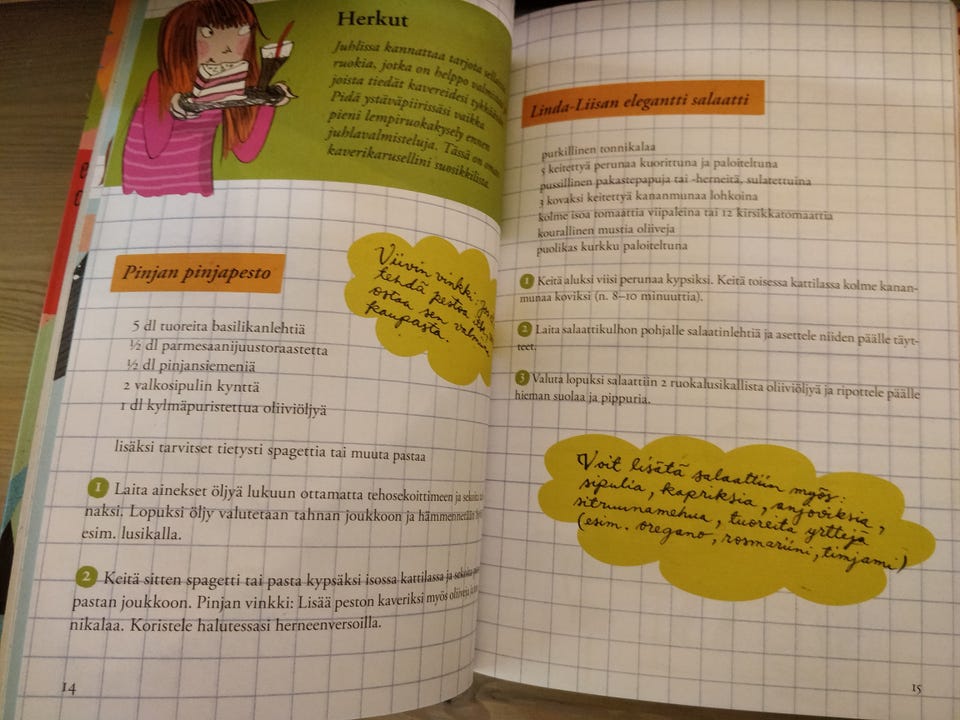 Herkut
Juhlissa kannattaa tarjota
ruokia, jotka on helppo
joista tiedät kavereidesi
Pidä ystäväpiirissäsi vaikka
pieni lempiruokakysely ennen
juhlavalmisteluja. Tässä on
kaverikarusellini suosikkilista.
Pinjan pinjapesto
Viivin vinkki:
tehdä pestoa
ostaa sen
kaupasta.
5 dl tuoreita basilikanlehtiä
½ dl parmesaanijuustoraastetta
½ dl pinjansiemeniä
2 valkosipulin kynttä
1 dl kylmäpuristettua oliiviöljyä
lisäksi tarvitset tietysti spagettia tai muuta pastaa
1 Laita ainekset öljyä lukuun ottamatta tehosekoittimeen ja
naksi. Lopuksi öljy valutetaan tahnan joukkoon ja hämmennetään
esim. lusikalla.
2 Keitä sitten spagetti tai pasta kypsäksi isossa kattilassa ja
pastan joukkoon. Pinjan vinkki: Lisää peston kaveriksi myös
nikalaa. Koristele halutessasi herneenversoilla.
14
Linda-Liisan elegantti salaatti
purkillinen tonnikalaa
5 keitettyä perunaa kuorittuna ja paloiteltuna
pussillinen pakastepapuja tai -herneitä, sulatettuina
3 kovaksi keitettyä kananmunaa lohkoina
kolme isoa tomaattia viipaleina tai 12 kirsikkatomaattia
kourallinen mustia oliiveja
puolikas kurkku paloiteltuna
1 Keitä aluksi viisi perunaa kypsiksi. Keitä toisessa kattilassa kolme kanan-
munaa koviksi (n. 8–10 minuuttia).
2 Laita salaattikulhon pohjalle salaatinlehtiä ja asettele niiden päälle täyt-
teet.
3 Valuta lopuksi salaattiin 2 ruokalusikallista oliiviöljyä ja ripottele päälle
hieman suolaa ja pippuria.
Voit lisätä salaattiin myös:
sipulia, kapriksia, anjoviksia,
sitruunamehua, tuoreita yrttejä
(esim. oregano, rosmariini, timjami)
15